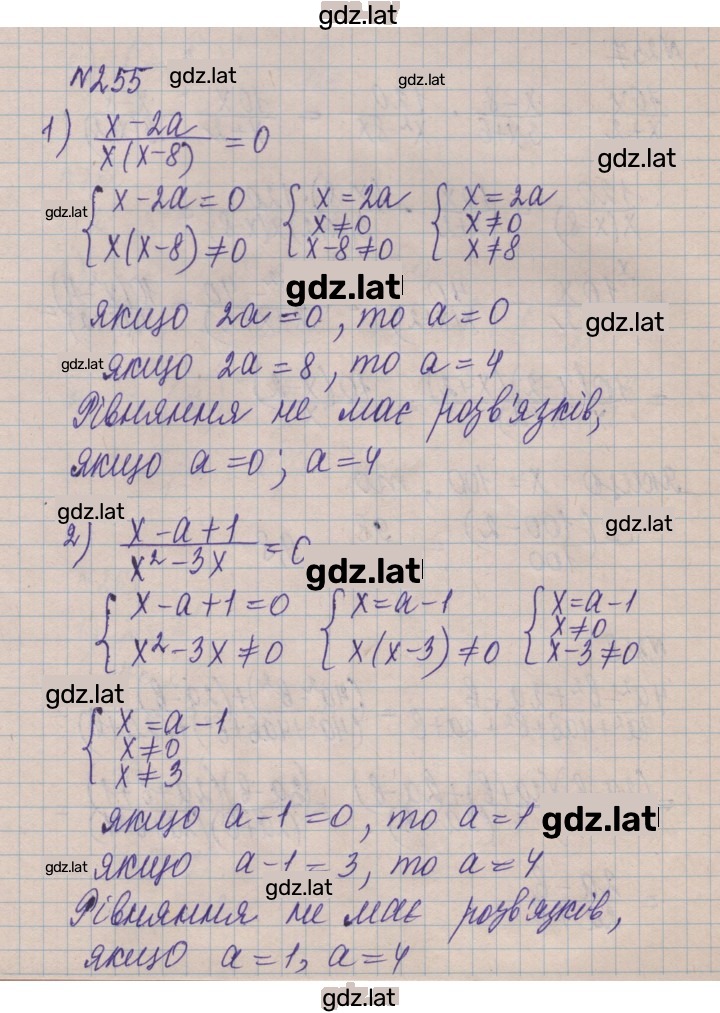 gdz.lat
№255 gdz.lat gdz.lat
1) (x-2a)/(x(x-8)) = 0
gdz.lat
gdz.lat { x-2a=0 { x=2a { x=2a
x≠0 x≠0
x(x-8)≠0 x-8≠0 x≠8
gdz.lat
якщо 2a=0, то a=0
gdz.lat
gdz.lat якщо 2a=8, то a=4
Рівняння не має розв'язків,
якщо a=0; a=4
gdz.lat gdz.lat
2) (x-a+1)/(x²-3x) = 0
gdz.lat
{ x-a+1=0 { x=a-1 { x=a-1
x≠0
x²-3x≠0 x(x-3)≠0 x-3≠0
gdz.lat
{ x=a-1
x≠0
x≠3
якщо a-1=0, то a=1 gdz.lat
gdz.lat якщо a-1=3, то a=4
gdz.lat
Рівняння не має розв'язків,
якщо a=1, a=4
gdz.lat